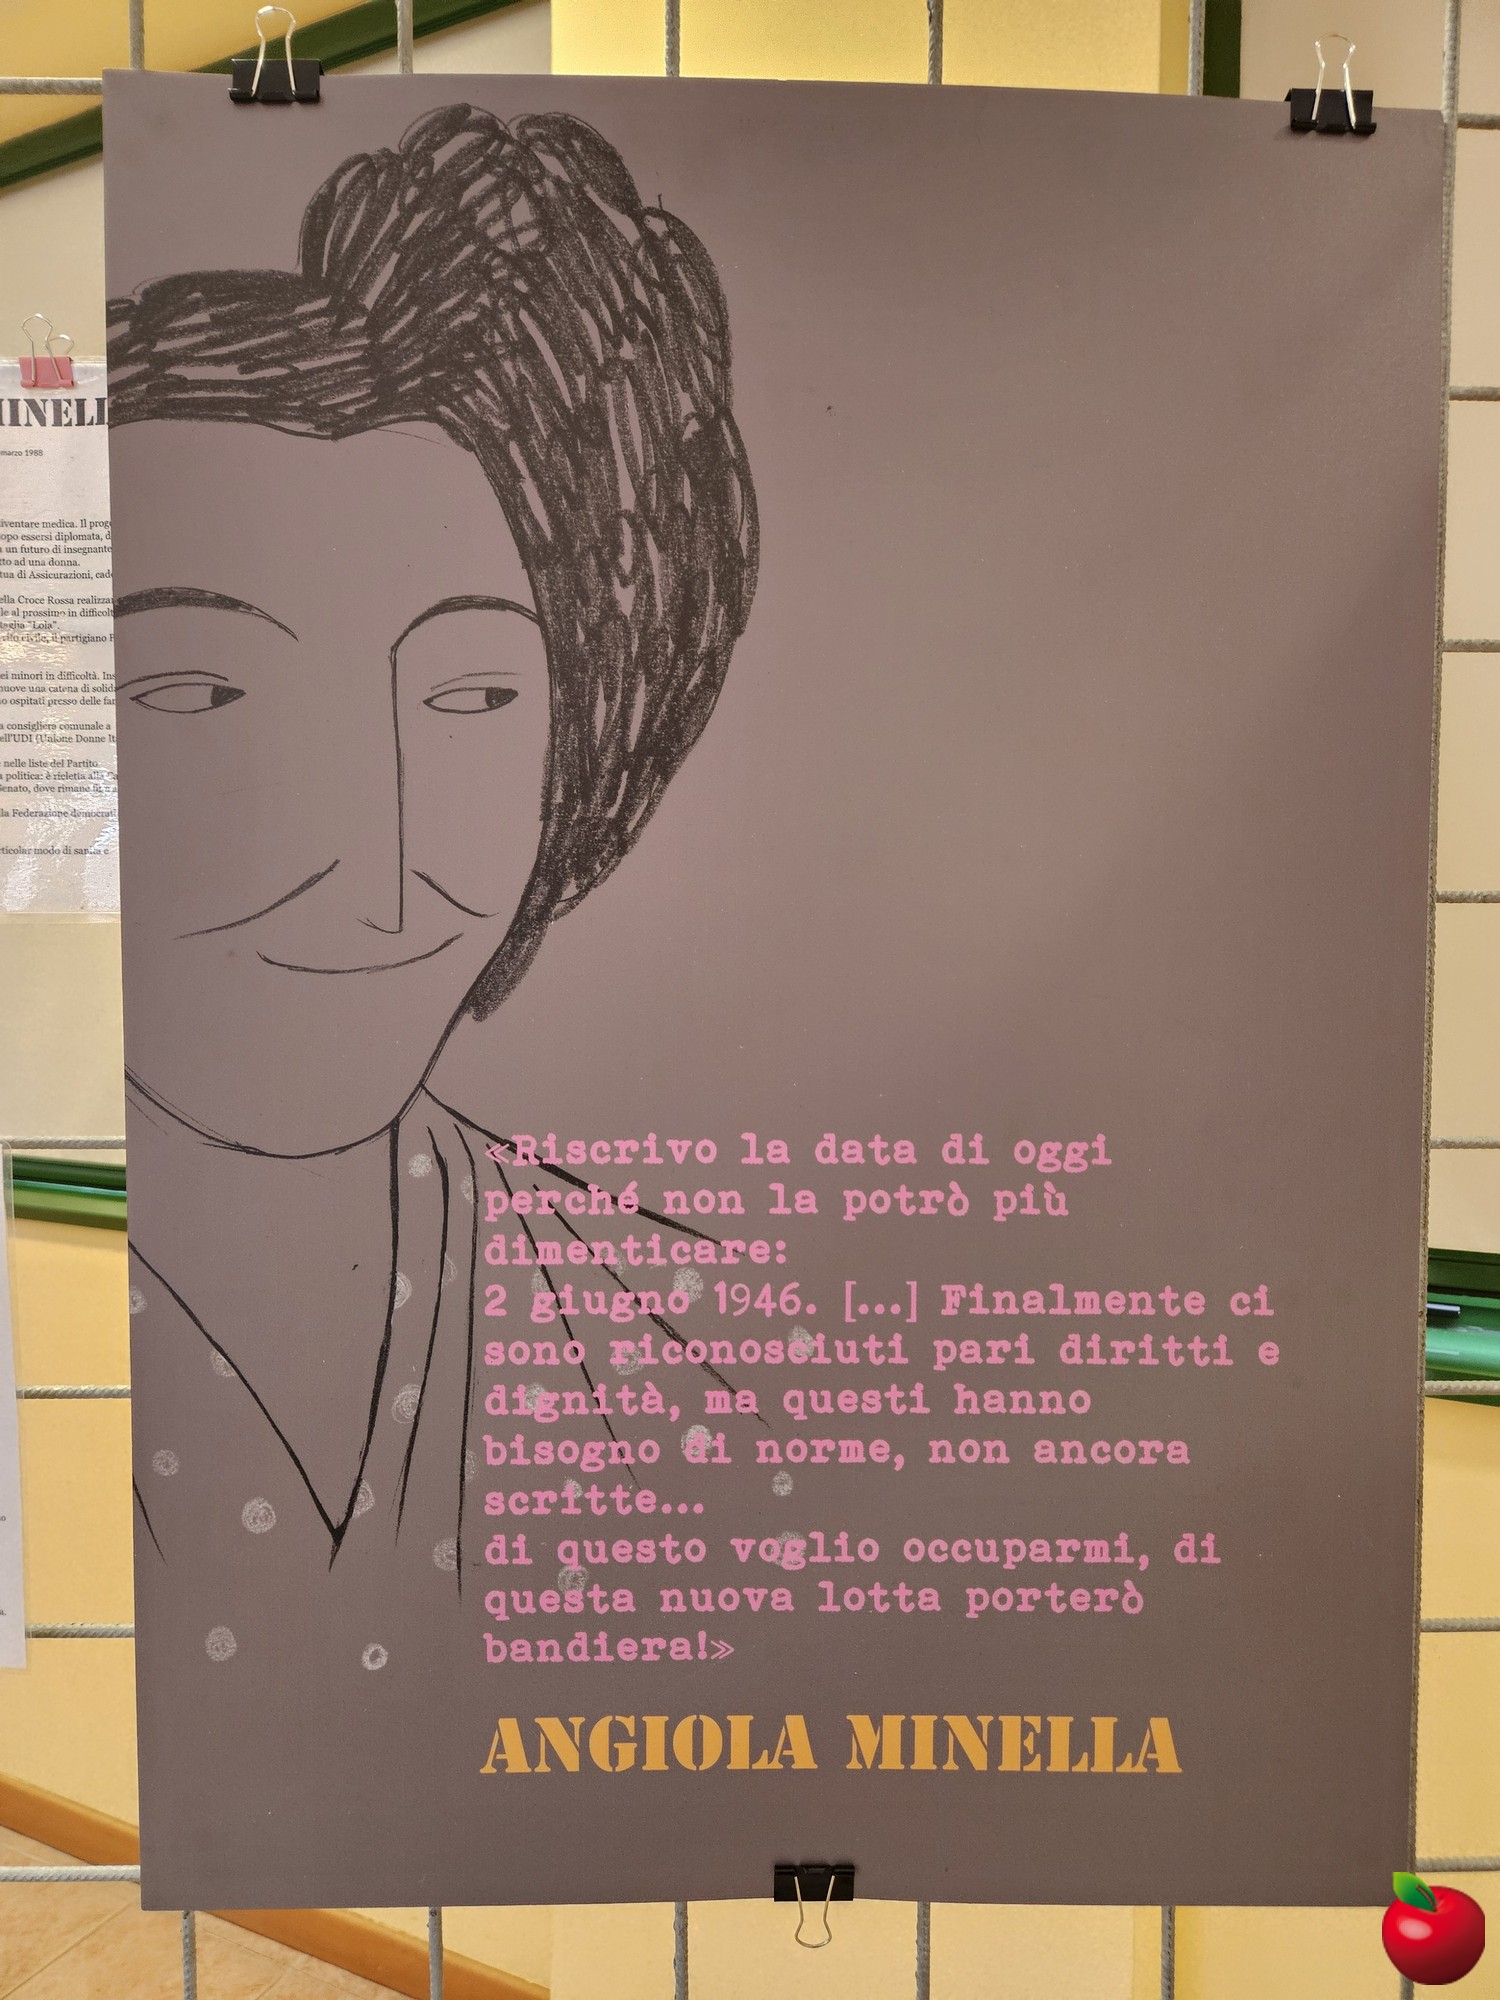 MINELL
marzo 1988
diventare medica. Il prog
opo essersi diplomata, d
a un futuro di insegnante
tto ad una donna.
tua di Assicurazioni, cad
ella Croce Rossa realizza
le al prossimo in difficolt
taglia "Loia".
rito civile, il partigiano F
ei minori in difficoltà. Ins
nuove una catena di solid
o ospitati presso delle fa
a consigliera comunale a
ell'UDI (Unione Donne It
nelle liste del Partito
a politica: è rieletta alla Ca
Senato, dove rimane fino a
la Federazione democrat
rticolar modo di sanità e
«Riscrivo la data di oggi
perché non la potrò più
dimenticare:
2 giugno 1946. [...] Finalmente ci
sono riconosciuti pari diritti e
dignità, ma questi hanno
bisogno di norme, non ancora
scritte...
di questo voglio occuparmi, di
questa nuova lotta porterò
bandiera!»
ANGIOLA MINELLA